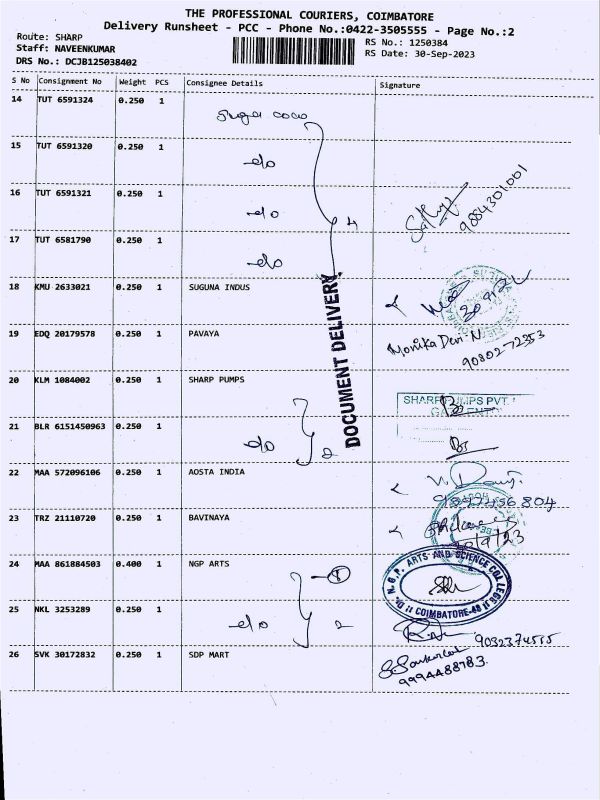 THE PROFESSIONAL COURIERS, COIMBATORE
Delivery Runsheet - PCC - Phone No.:0422-3505555 - Page No.:2
Route: SHARP
Staff: NAVEENKUMAR
DRS No.: DCJB125038402
RS No.: 1250384
RS Date: 30-Sep-2023
S No Consignment No Weight PCS Consignee Details Signature
14 TUT 6591324 0.250 1
15 TUT 6591320 0.250 1 do
16 TUT 6591321 0.250 1 do 4
9884301001
17 TUT 6581790 0.250 1 do
18 KMU 2633021 0.250 1 SUGUNA INDUS
19 EDQ 20179578 0.250 1 PAVAYA Monika Devi N
90802-72353
DOCUMENT DELIVERY
20 KLM 1084002 0.250 1 SHARP PUMPS
SHARP PUMPS PVT
21 BLR 6151450963 0.250 1 do 2
22 MAA 572096106 0.250 1 AOSTA INDIA
23 TRZ 21110720 0.250 1 BAVINAYA
24 MAA 861884503 0.400 1 NGP ARTS 1
N.G.P. ARTS AND SCIENCE COLLEGE
COIMBATORE-48
25 NKL 3253289 0.250 1 do 2
26 SVK 30172832 0.250 1 SDP MART
9994488783.